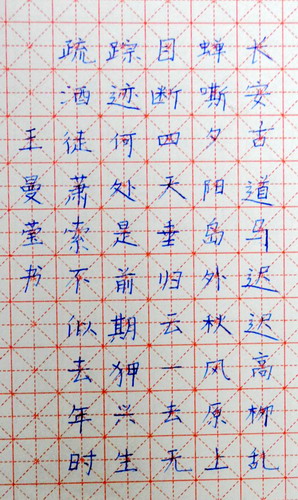 长安古道马迟迟高柳乱
蝉嘶夕阳岛外秋风原上
目断四天垂归云一去无
踪迹何处是前期狎兴生
疏酒徒萧索不似去年时
王曼莹书